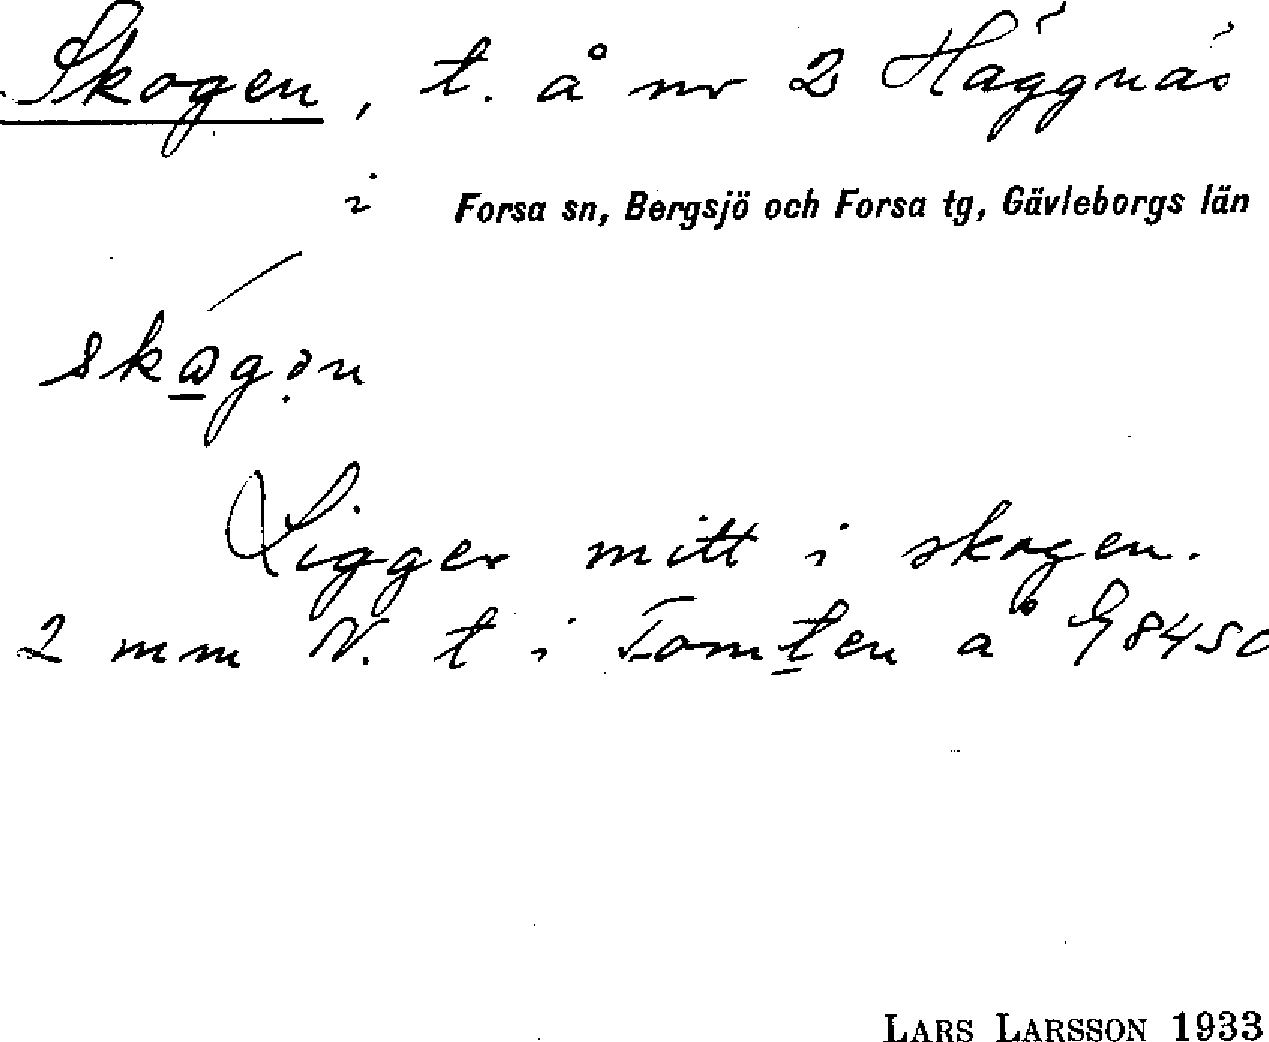 Skogen, t. å nr 2 Häggnäs
i Forsa sn, Bergsjö och Forsa tg, Gävleborgs län
skωgən
Ligger mitt i skogen.
2 mm N. t i Tomten å G845c
LARS LARSSON 1933